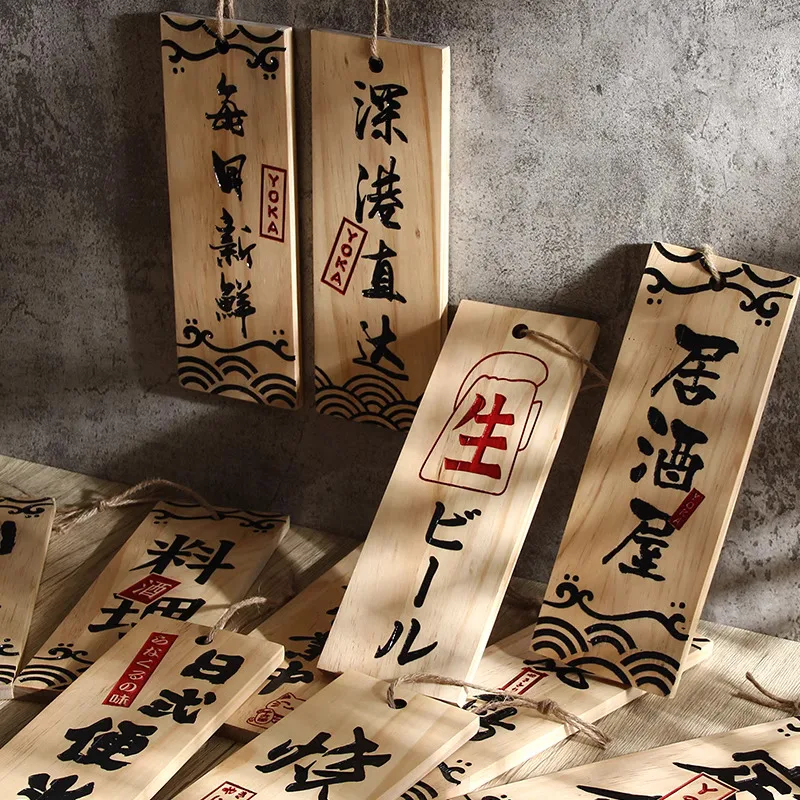 每日新鮮
YOKA
深港直达
YOKA
生
ビール
居酒屋
YOKA
料理
酒
日式便
らなくるの味
焼
YOKA